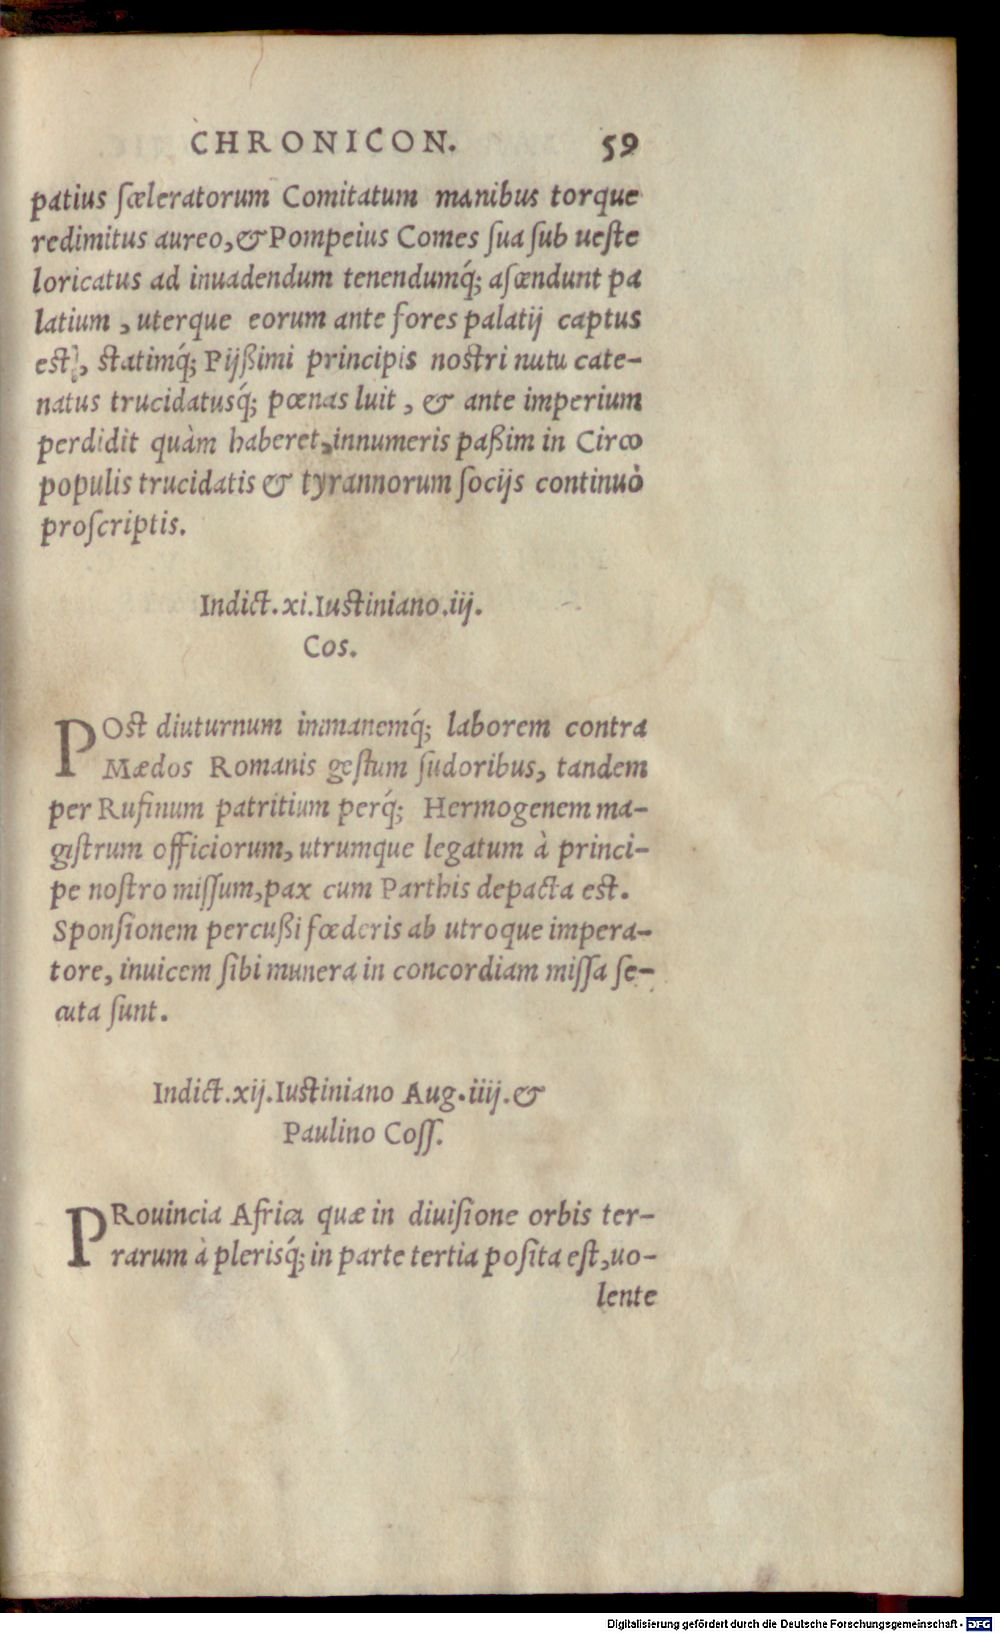 CHRONICON. 59
patius sceleratorum Comitatum manibus torque
redimitus aureo, & Pompeius Comes sua sub ueste
loricatus ad inuadendum tenendumq́; ascendunt pa
latium, uterque eorum ante fores palatij captus
est, statimq́; Pijßimi principis nostri nutu cate-
natus trucidatusq́; pœnas luit, & ante imperium
perdidit quàm haberet, innumeris paßim in Circo
populis trucidatis & tyrannorum socijs continuò
proscriptis.
Indict. xi. Iustiniano. iij.
Cos.
POst diuturnum immanemq́; laborem contra
Mædos Romanis gestum sudoribus, tandem
per Rufinum patritium perq́; Hermogenem ma-
gistrum officiorum, utrumque legatum à princi-
pe nostro missum, pax cum Parthis depacta est.
Sponsionem percußi fœderis ab utroque impera-
tore, inuicem sibi munera in concordiam missa se-
cuta sunt.
Indict. xij. Iustiniano Aug. iiij. &
Paulino Coss.
PRouincia Africa quæ in diuisione orbis ter-
rarum à plerisq́; in parte tertia posita est, uo-
lente
Digitalisierung gefördert durch die Deutsche Forschungsgemeinschaft - DFG